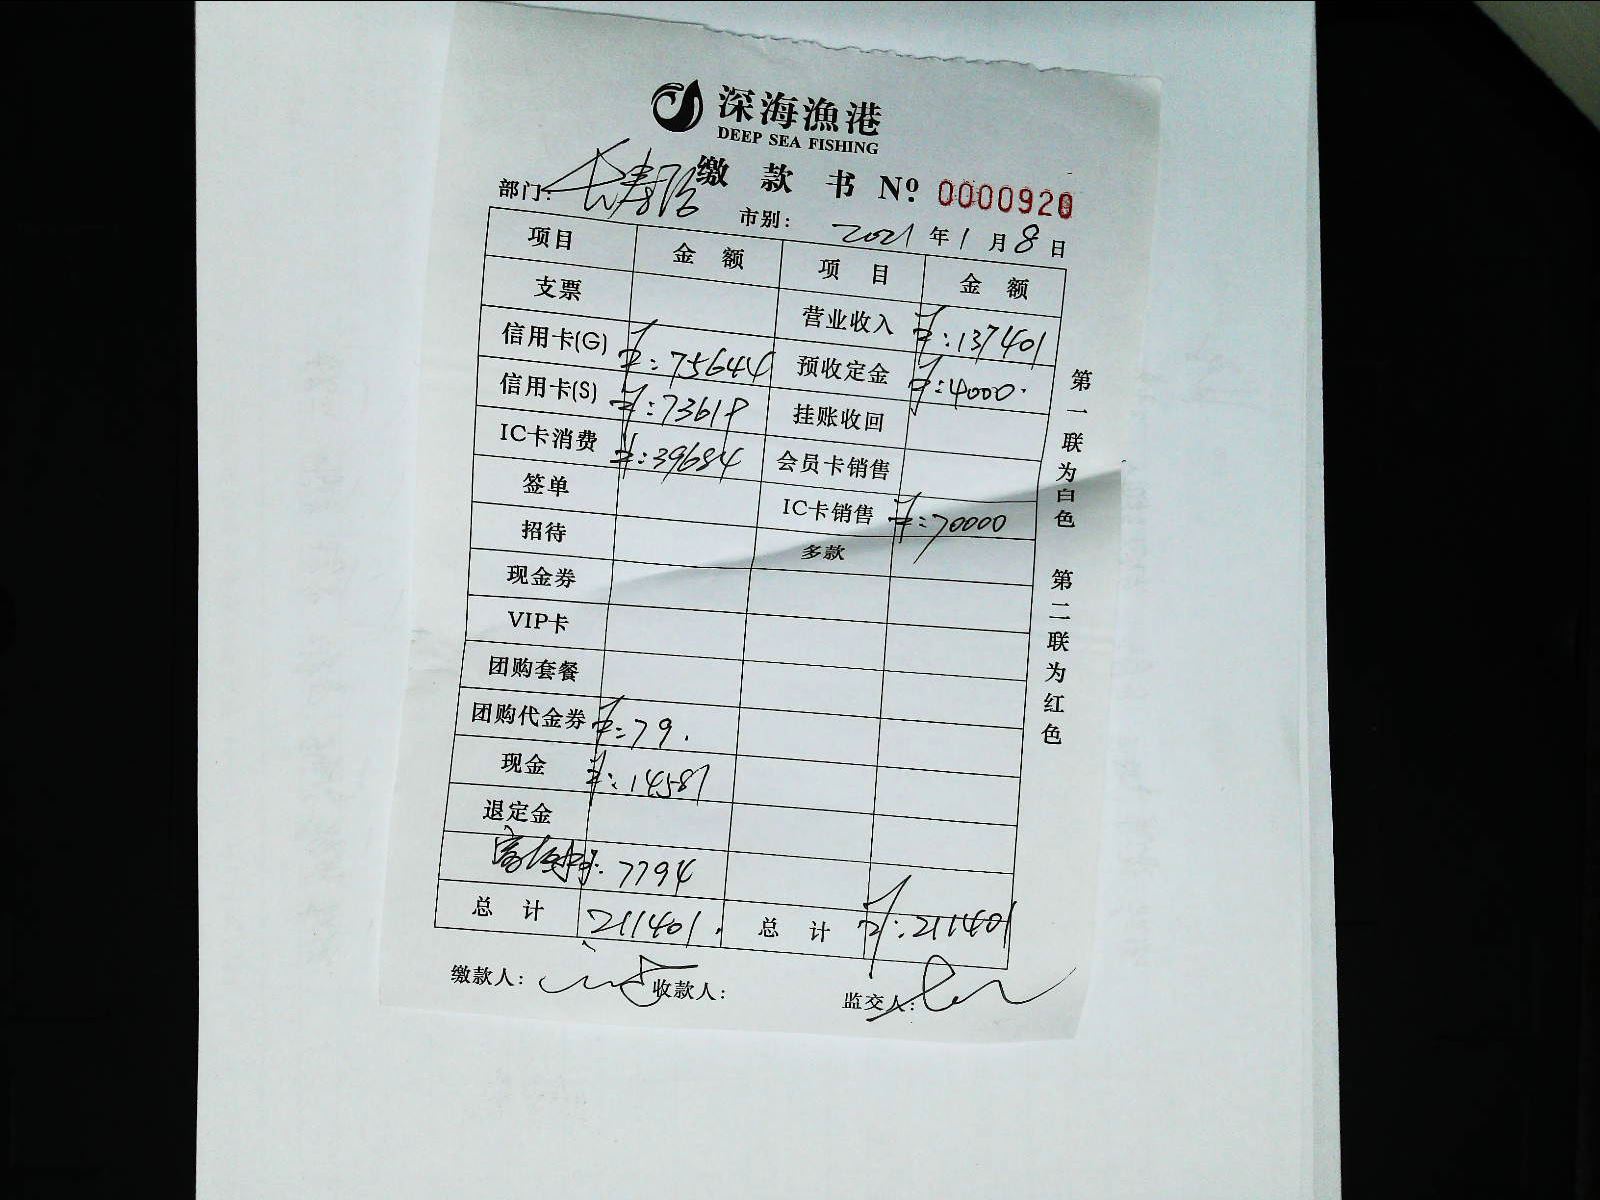 深海漁港
DEEP SEA FISHING
缴款书 Nº: 0000920
部门: 长寿路 市别: 2021年1月8日
项目 金额 项目 金额
支票 营业收入 ¥:137401
信用卡(G) ¥:75644 预收定金 ¥:4000.
信用卡(S) ¥:73618 挂账收回
IC卡消费 ¥:39684 会员卡销售
签单 IC卡销售 ¥:70000
招待 多款
现金券
VIP卡
团购套餐
团购代金券 ¥:79.
现金 ¥:14587
退定金
7794
总计 211401. 总计 ¥:211401
缴款人: 收款人: 监交人:
第一联为白色 第二联为红色